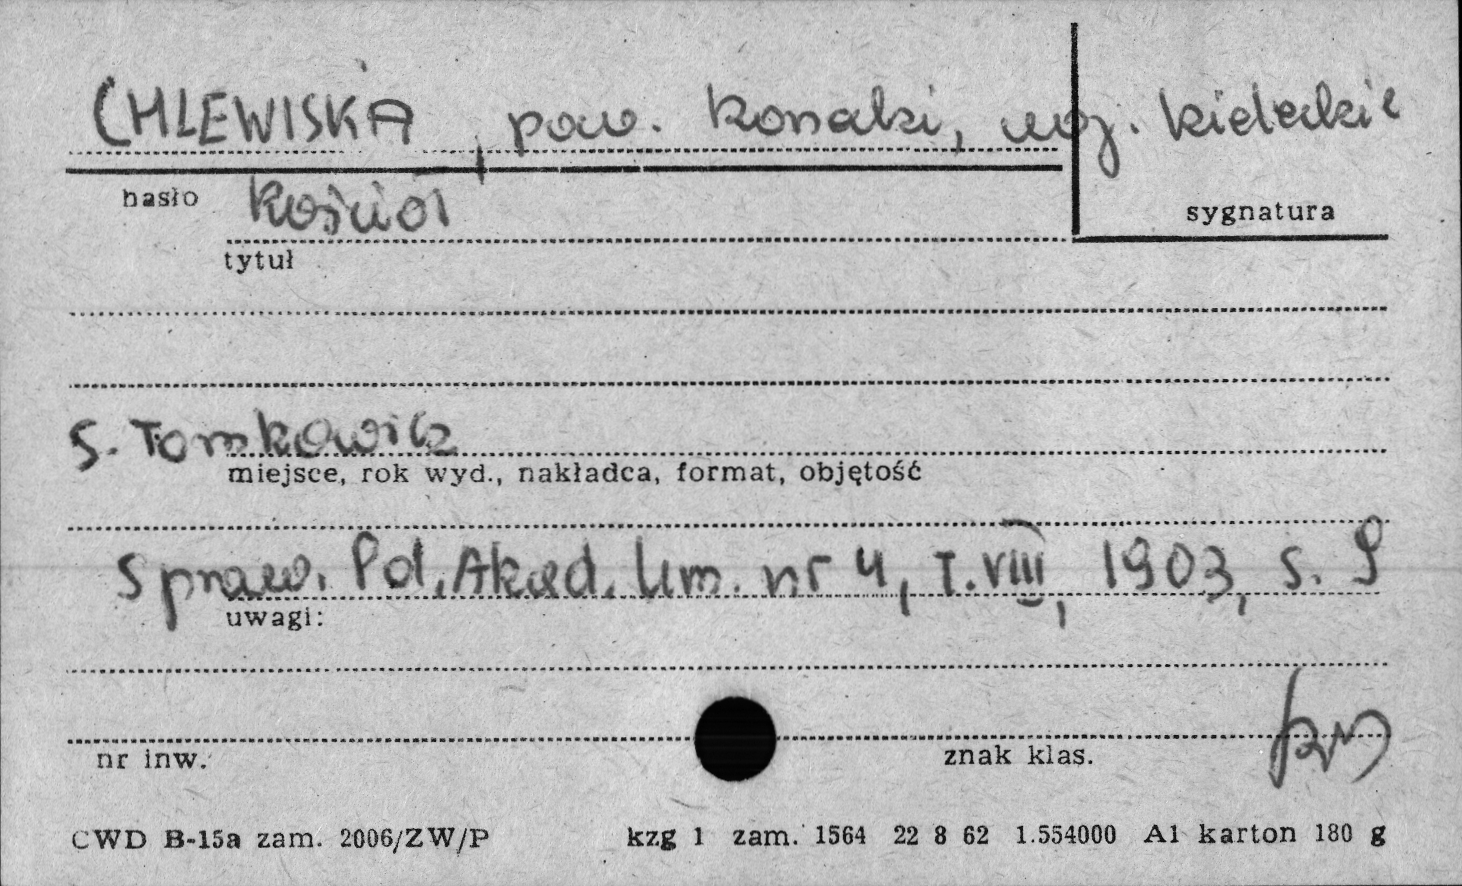 CHLEWISKA, pow. konecki, woj. kieleckie
hasło kościół
sygnatura
tytuł
S. Tomkowicz
miejsce, rok wyd., nakładca, format, objętość
Spraw. Pol. Akad. Um. nr 4, T. VIII, 1903, s. 9
uwagi:
nr inw.
znak klas.
CWD B-15a zam. 2006/ZW/P kzg 1 zam. 1564 22 8 62 1.554000 A1 karton 180 g